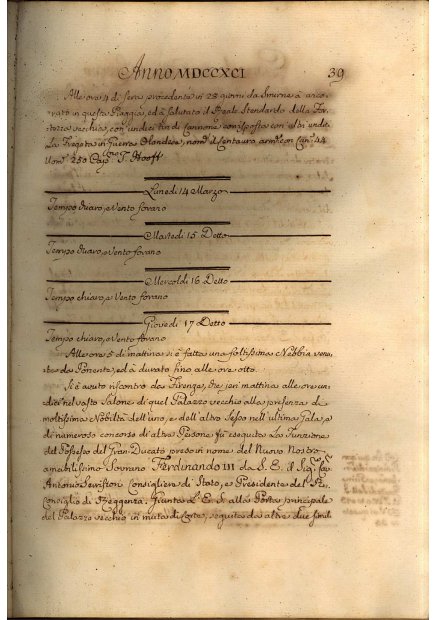 ANNO MDCCXCI 39
Alle ore 4 di sera procedente in 28 giorni da Smirne à anco-
rato in questa Spiaggia, ed à salutato il Reale Stendardo della For-
tezza vecchia, con undici tiri di Cannone corrisposta con altri undici
La Fregata in Guerra Olandese, nom.ª il Centauro arm.ª con Can.ⁱ 44
Uom.ⁱ 250 Cap.º T.
Lunedì 14 Marzo
Tempo chiaro, e Vento sovano
Martedì 15 Detto
Tempo chiaro, e Vento sovano
Mercoldì 16 Detto
Tempo chiaro, e Vento sovano
Giovedì 17 Detto
Tempo chiaro, e Vento sovano
Alle ore 5 di mattina si è fatta una foltissima Nebbia venu-
ta da Ponente, ed à durato fino alle ore otto.
Si è avuto riscontro da Firenze, che jeri mattina alle ore un-
dici nel vasto Salone di quel Palazzo vecchio alla presenza di
moltissima Nobiltà dell'uno, e dell'altro Sesso nell'ultima Gala, e
di numeroso concorso di altre Persone fù eseguita La Funzione
del Possesso del Gran Ducato preso in nome del Nuovo Nostro
amabilissimo Sovrano FERDINANDO III da S. E. il Sig.
Antonio Serristori Consigliere di Stato, e Presidente del R.
Consiglio di Reggenza. Giunta L'E. S. alla Porta principale
del Palazzo vecchio in muta di Corte, seguita da altre due simili